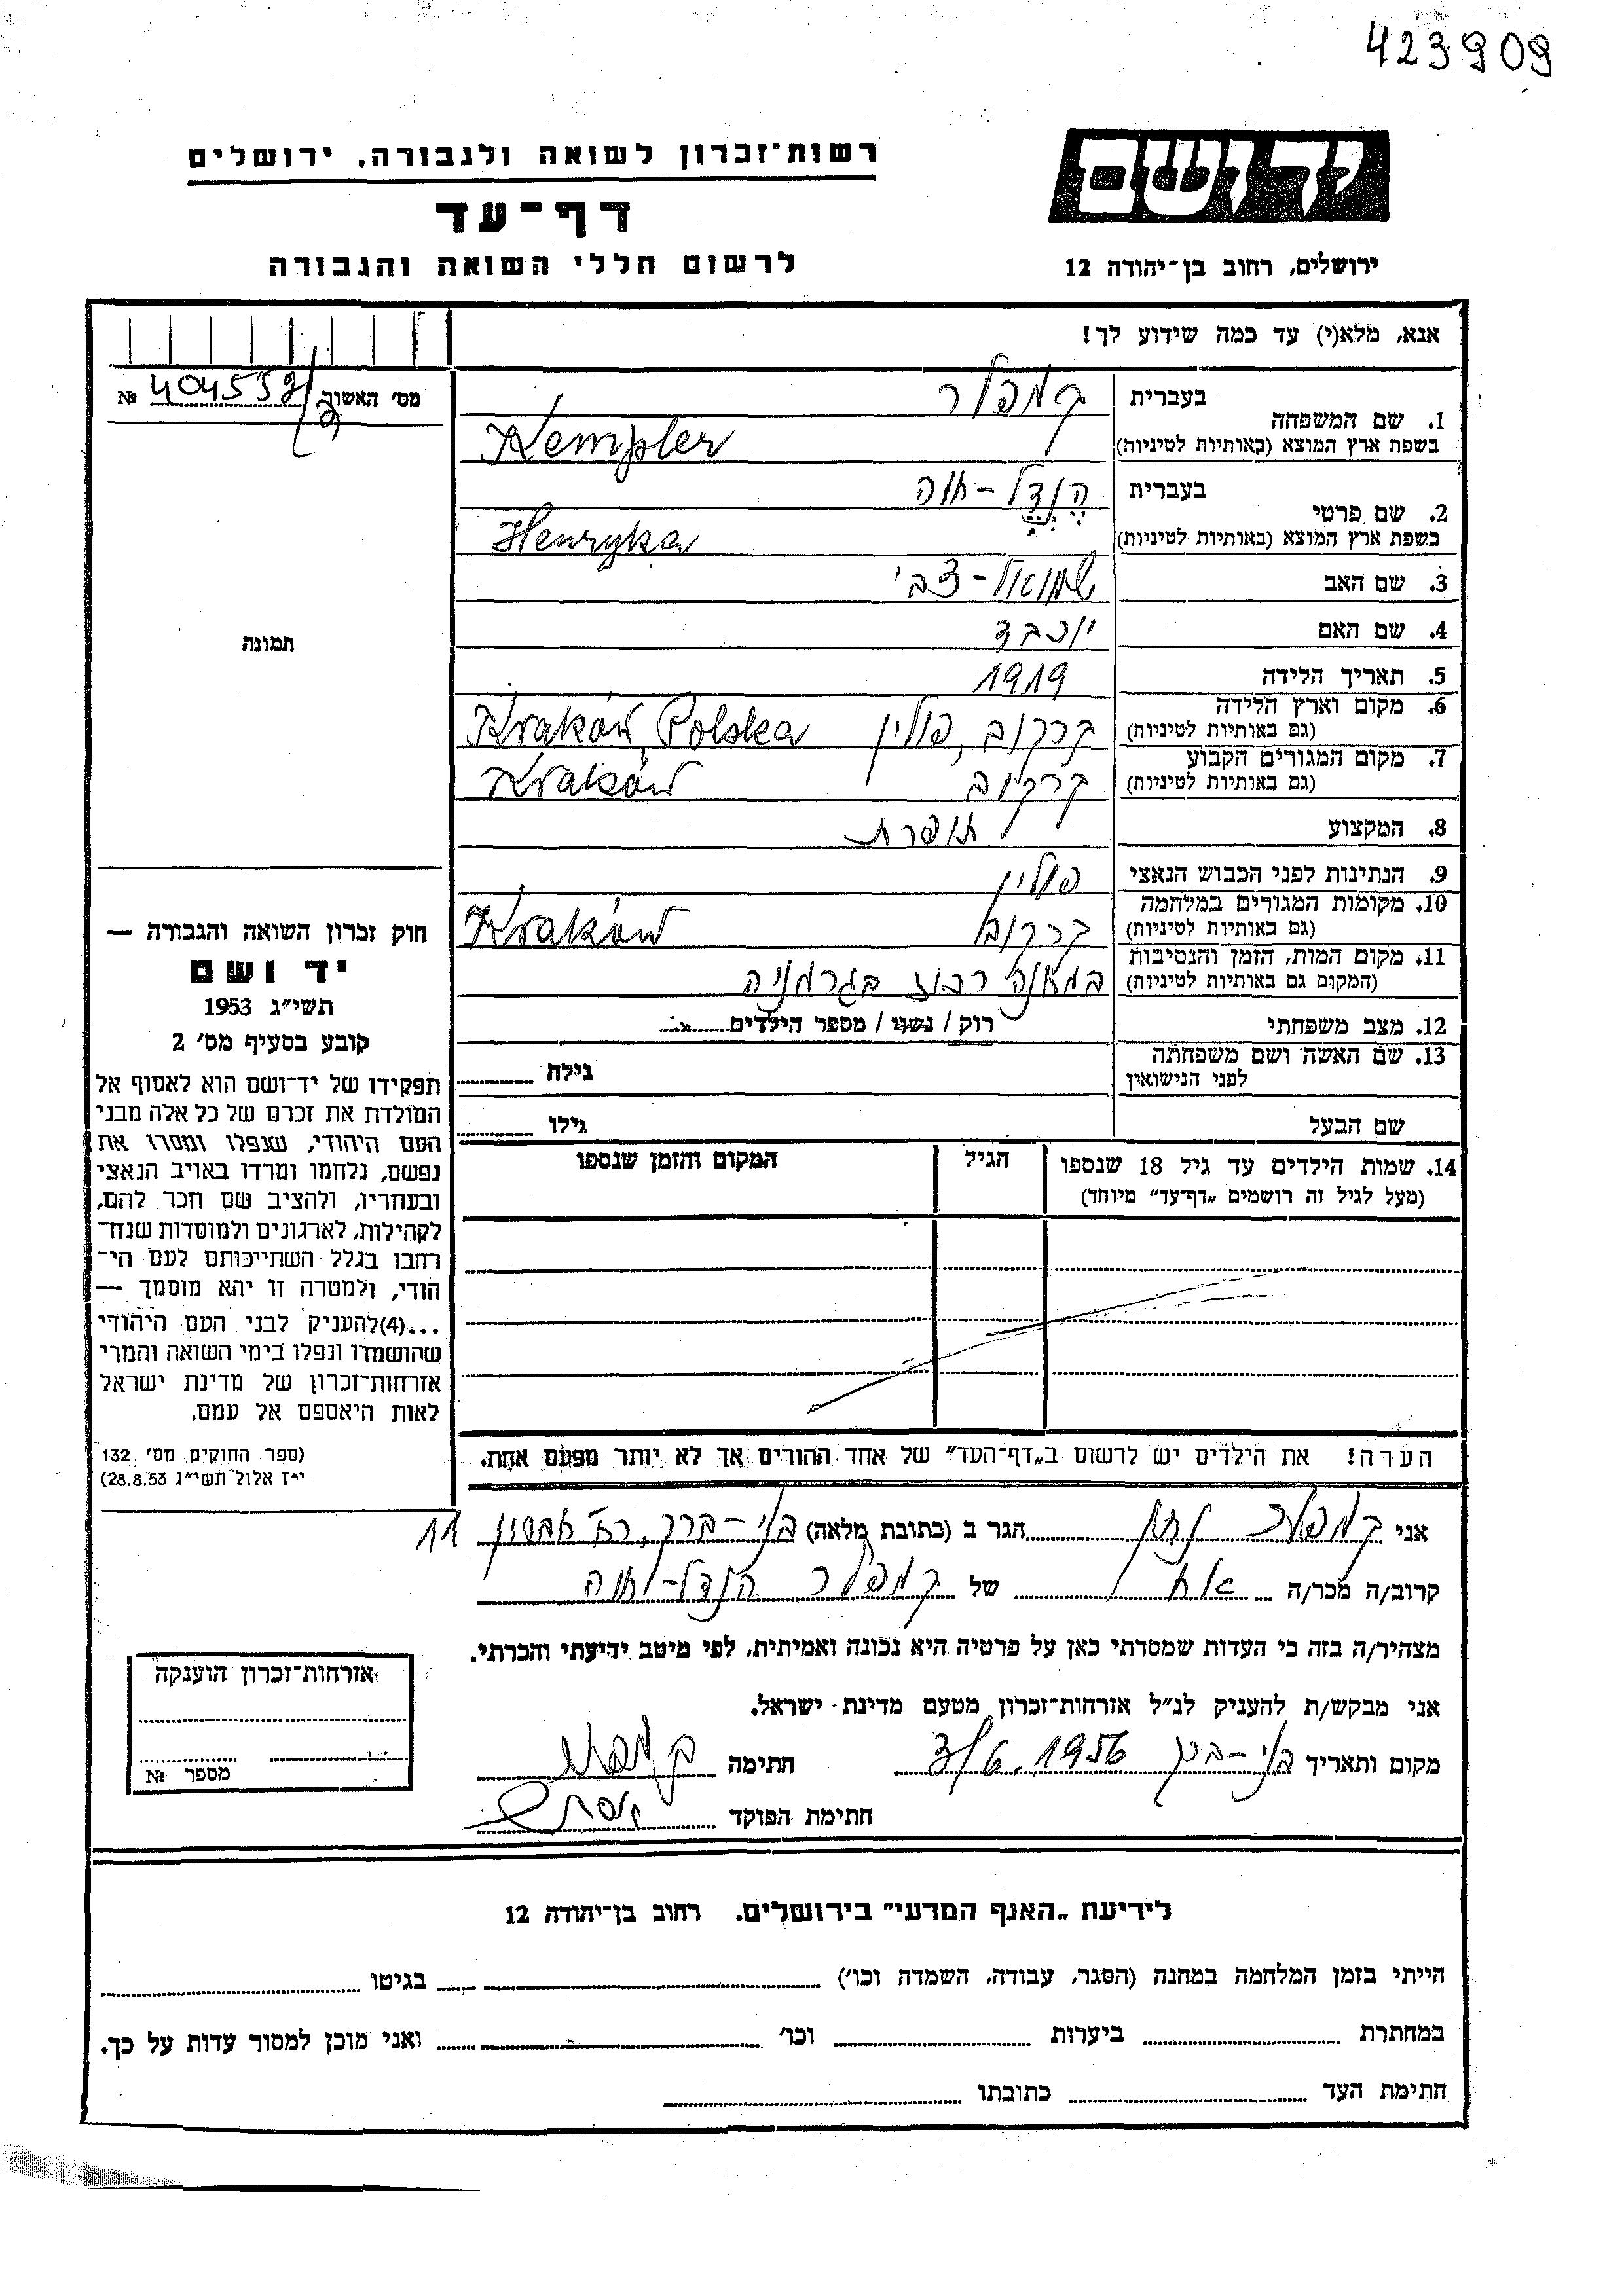 423909
רשות־זכרון לשואה ולגבורה, ירושלים
יד ושם
דף־עד
לרשום חללי השואה והגבורה
ירושלים, רחוב בן־יהודה 12
אנא, מלא(י) עד כמה שידוע לך!
מס׳ האשור № 404552
1. שם המשפחה בעברית קמפלר
בשפת ארץ המוצא (באותיות לטיניות) Kempler
2. שם פרטי בעברית הֶנְדֶל-חוה
בשפת ארץ המוצא (באותיות לטיניות) Henryka
3. שם האב שמואל-צבי
4. שם האם יוכבד
5. תאריך הלידה 1919
6. מקום וארץ הלידה (גם באותיות לטיניות) קרקוב, פולין Kraków, Polska
7. מקום המגורים הקבוע (גם באותיות לטיניות) קרקוב Kraków
8. המקצוע תופרת
9. הנתינות לפני הכבוש הנאצי פולין
10. מקומות המגורים במלחמה (גם באותיות לטיניות) קרקוב Kraków
11. מקום המות, הזמן והנסיבות (המקום גם באותיות לטיניות) במחנה רכוז בגרמניה
12. מצב משפחתי רוק / נשוי / מספר הילדים
13. שם האשה ושם משפחתה לפני הנישואין גילה
שם הבעל גילו
14. שמות הילדים עד גיל 18 שנספו הגיל המקום והזמן שנספו
(מעל לגיל זה רושמים „דף־עד״ מיוחד)
הערה! את הילדים יש לרשום ב„דף־העד״ של אחד ההורים אך לא יותר מפעם אחת.
תמונה
חוק זכרון השואה והגבורה —
יד ושם
תשי״ג 1953
קובע בסעיף מס׳ 2
תפקידו של יד־ושם הוא לאסוף אל
המולדת את זכרם של כל אלה מבני
העם היהודי, שנפלו ומסרו את
נפשם, נלחמו ומרדו באויב הנאצי
ובעוזריו, ולהציב שם וזכר להם,
לקהילות, לארגונים ולמוסדות שנח־
רחבו בגלל השתייכותם לעם הי־
הודי, ולמטרה זו יהא מוסמך —
...(4)להעניק לבני העם היהודי
שהושמדו ונפלו בימי השואה והמרי
אזרחות־זכרון של מדינת ישראל
לאות היאספם אל עמם.
(ספר החוקים מס׳ 132,
י״ז אלול תשי״ג 28.8.53)
אני קמפלר נתן הגר ב (כתובת מלאה) בני-ברק, 11
קרוב/ה מכר/ה אח של קמפלר הנדל-חוה
מצהיר/ה בזה כי העדות שמסרתי כאן על פרטיה היא נכונה ואמיתית, לפי מיטב ידיעתי והכרתי.
אני מבקש/ת להעניק לנ״ל אזרחות־זכרון מטעם מדינת־ישראל.
מקום ותאריך בני-ברק 1956 חתימה
חתימת הפוקד
אזרחות־זכרון הוענקה
מספר №
לידיעת „האגף המדעי״ בירושלים, רחוב בן־יהודה 12
הייתי בזמן המלחמה במחנה (הסגר, עבודה, השמדה וכו׳) בגיטו
במחתרת ביערות וכו׳ ואני מוכן למסור עדות על כך.
חתימת העד כתובתו